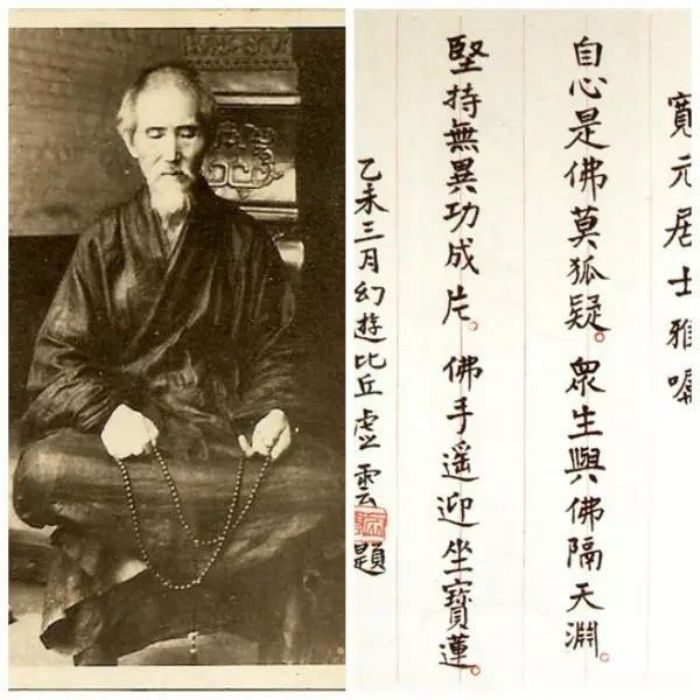 寬元居士雅嘱
自心是佛莫狐疑。眾生與佛隔天淵。
堅持無異功成片。佛手遥迎坐寶蓮。
乙未三月幻遊比丘虛雲題